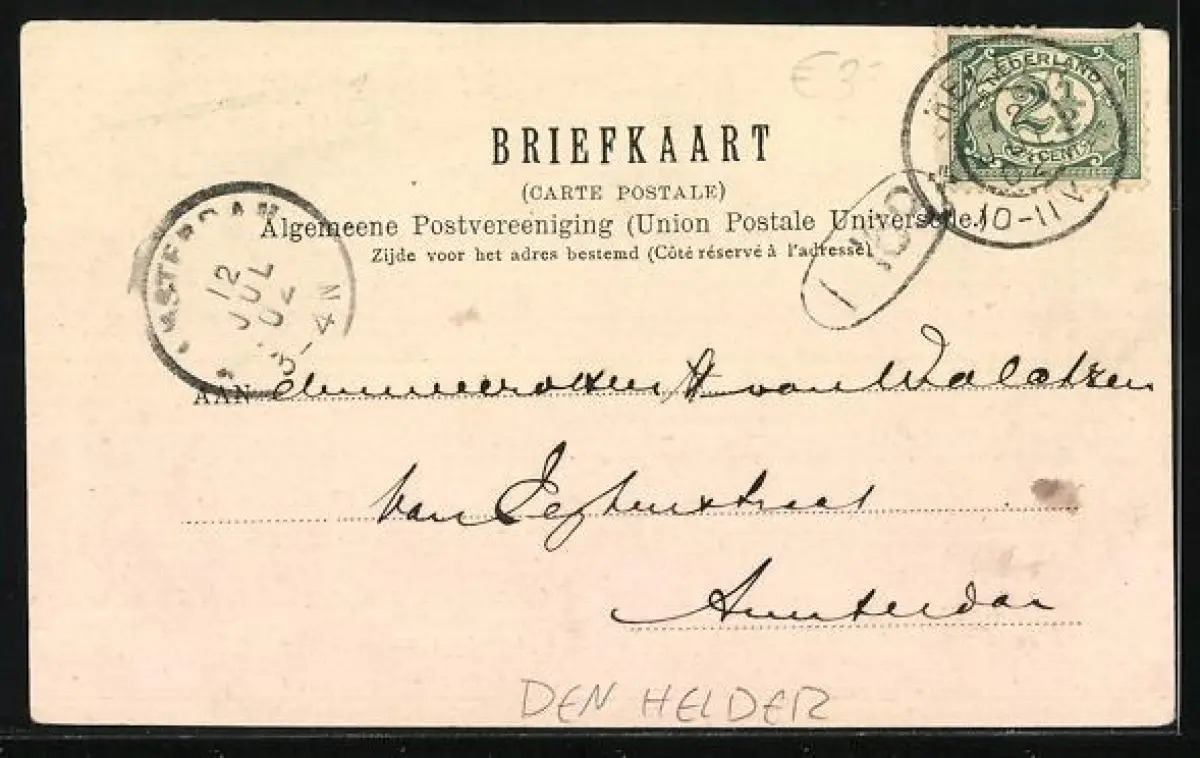 € 3-
NEDERLAND
2½
2½ CENT
HEL
02
10-11V
BRIEFKAART
(CARTE POSTALE)
Algemeene Postvereeniging (Union Postale Universelle.)
Zijde voor het adres bestemd (Côté réservé à l'adresse)
AMSTERDAM
12
JUL
02
3-4N
AAN
van
Van Eeghenstraat
Amsterdam
DEN HELDER